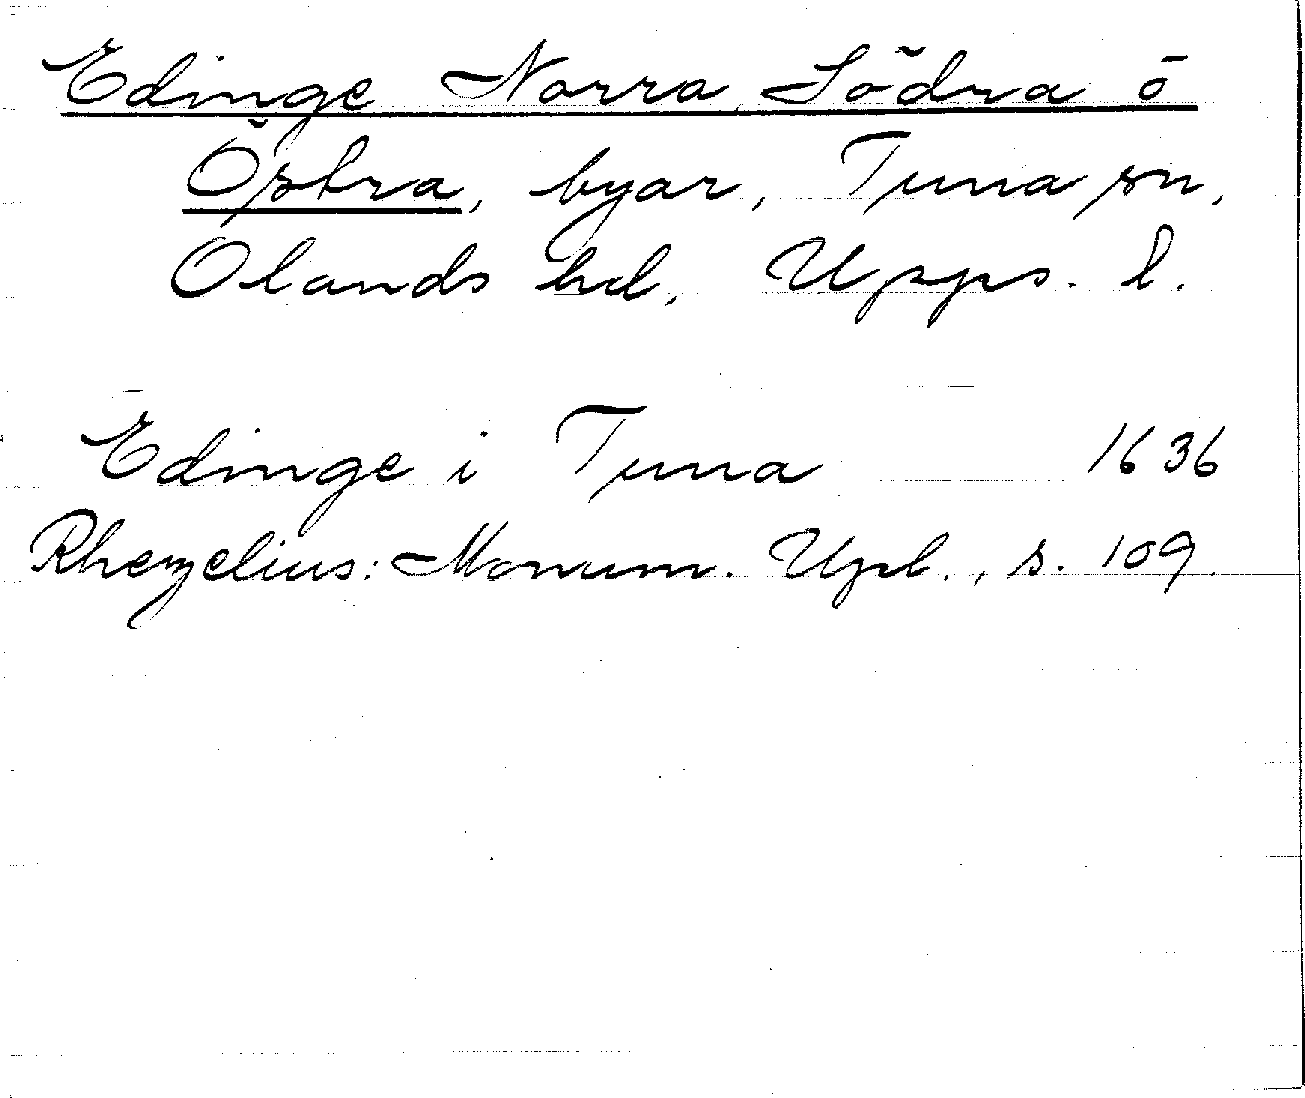 Edinge Norra, Södra o
Östra, byar, Tuna sn,
Olands hd, Upps. l.
Edinge i Tuna 1636
Rhezelius: Monum. Upl., s. 109.